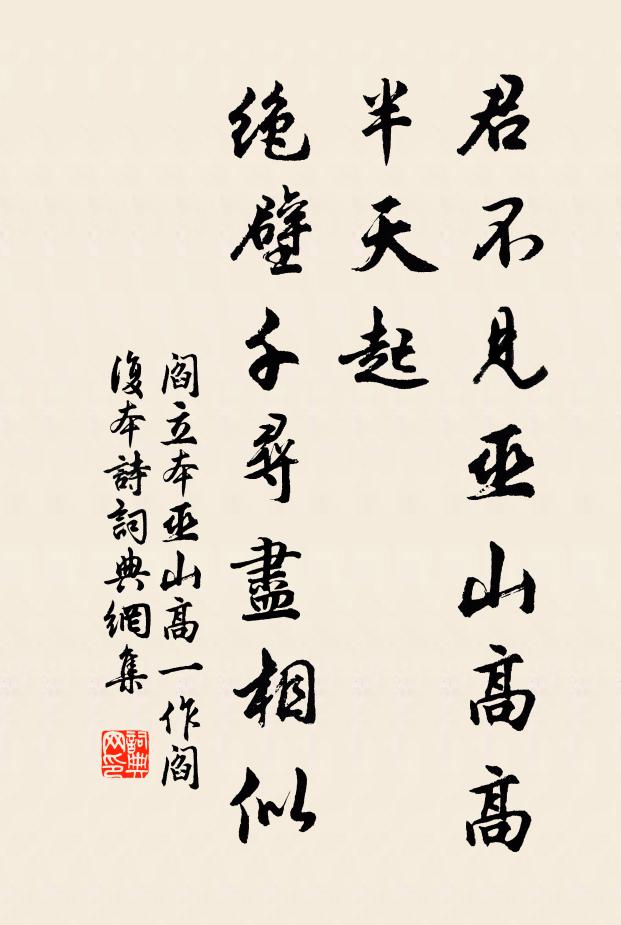 君不見巫山高高
半天起
绝壁千尋盡相似
閻立本巫山高一作閻
復本詩詞典網集
詞典
网印